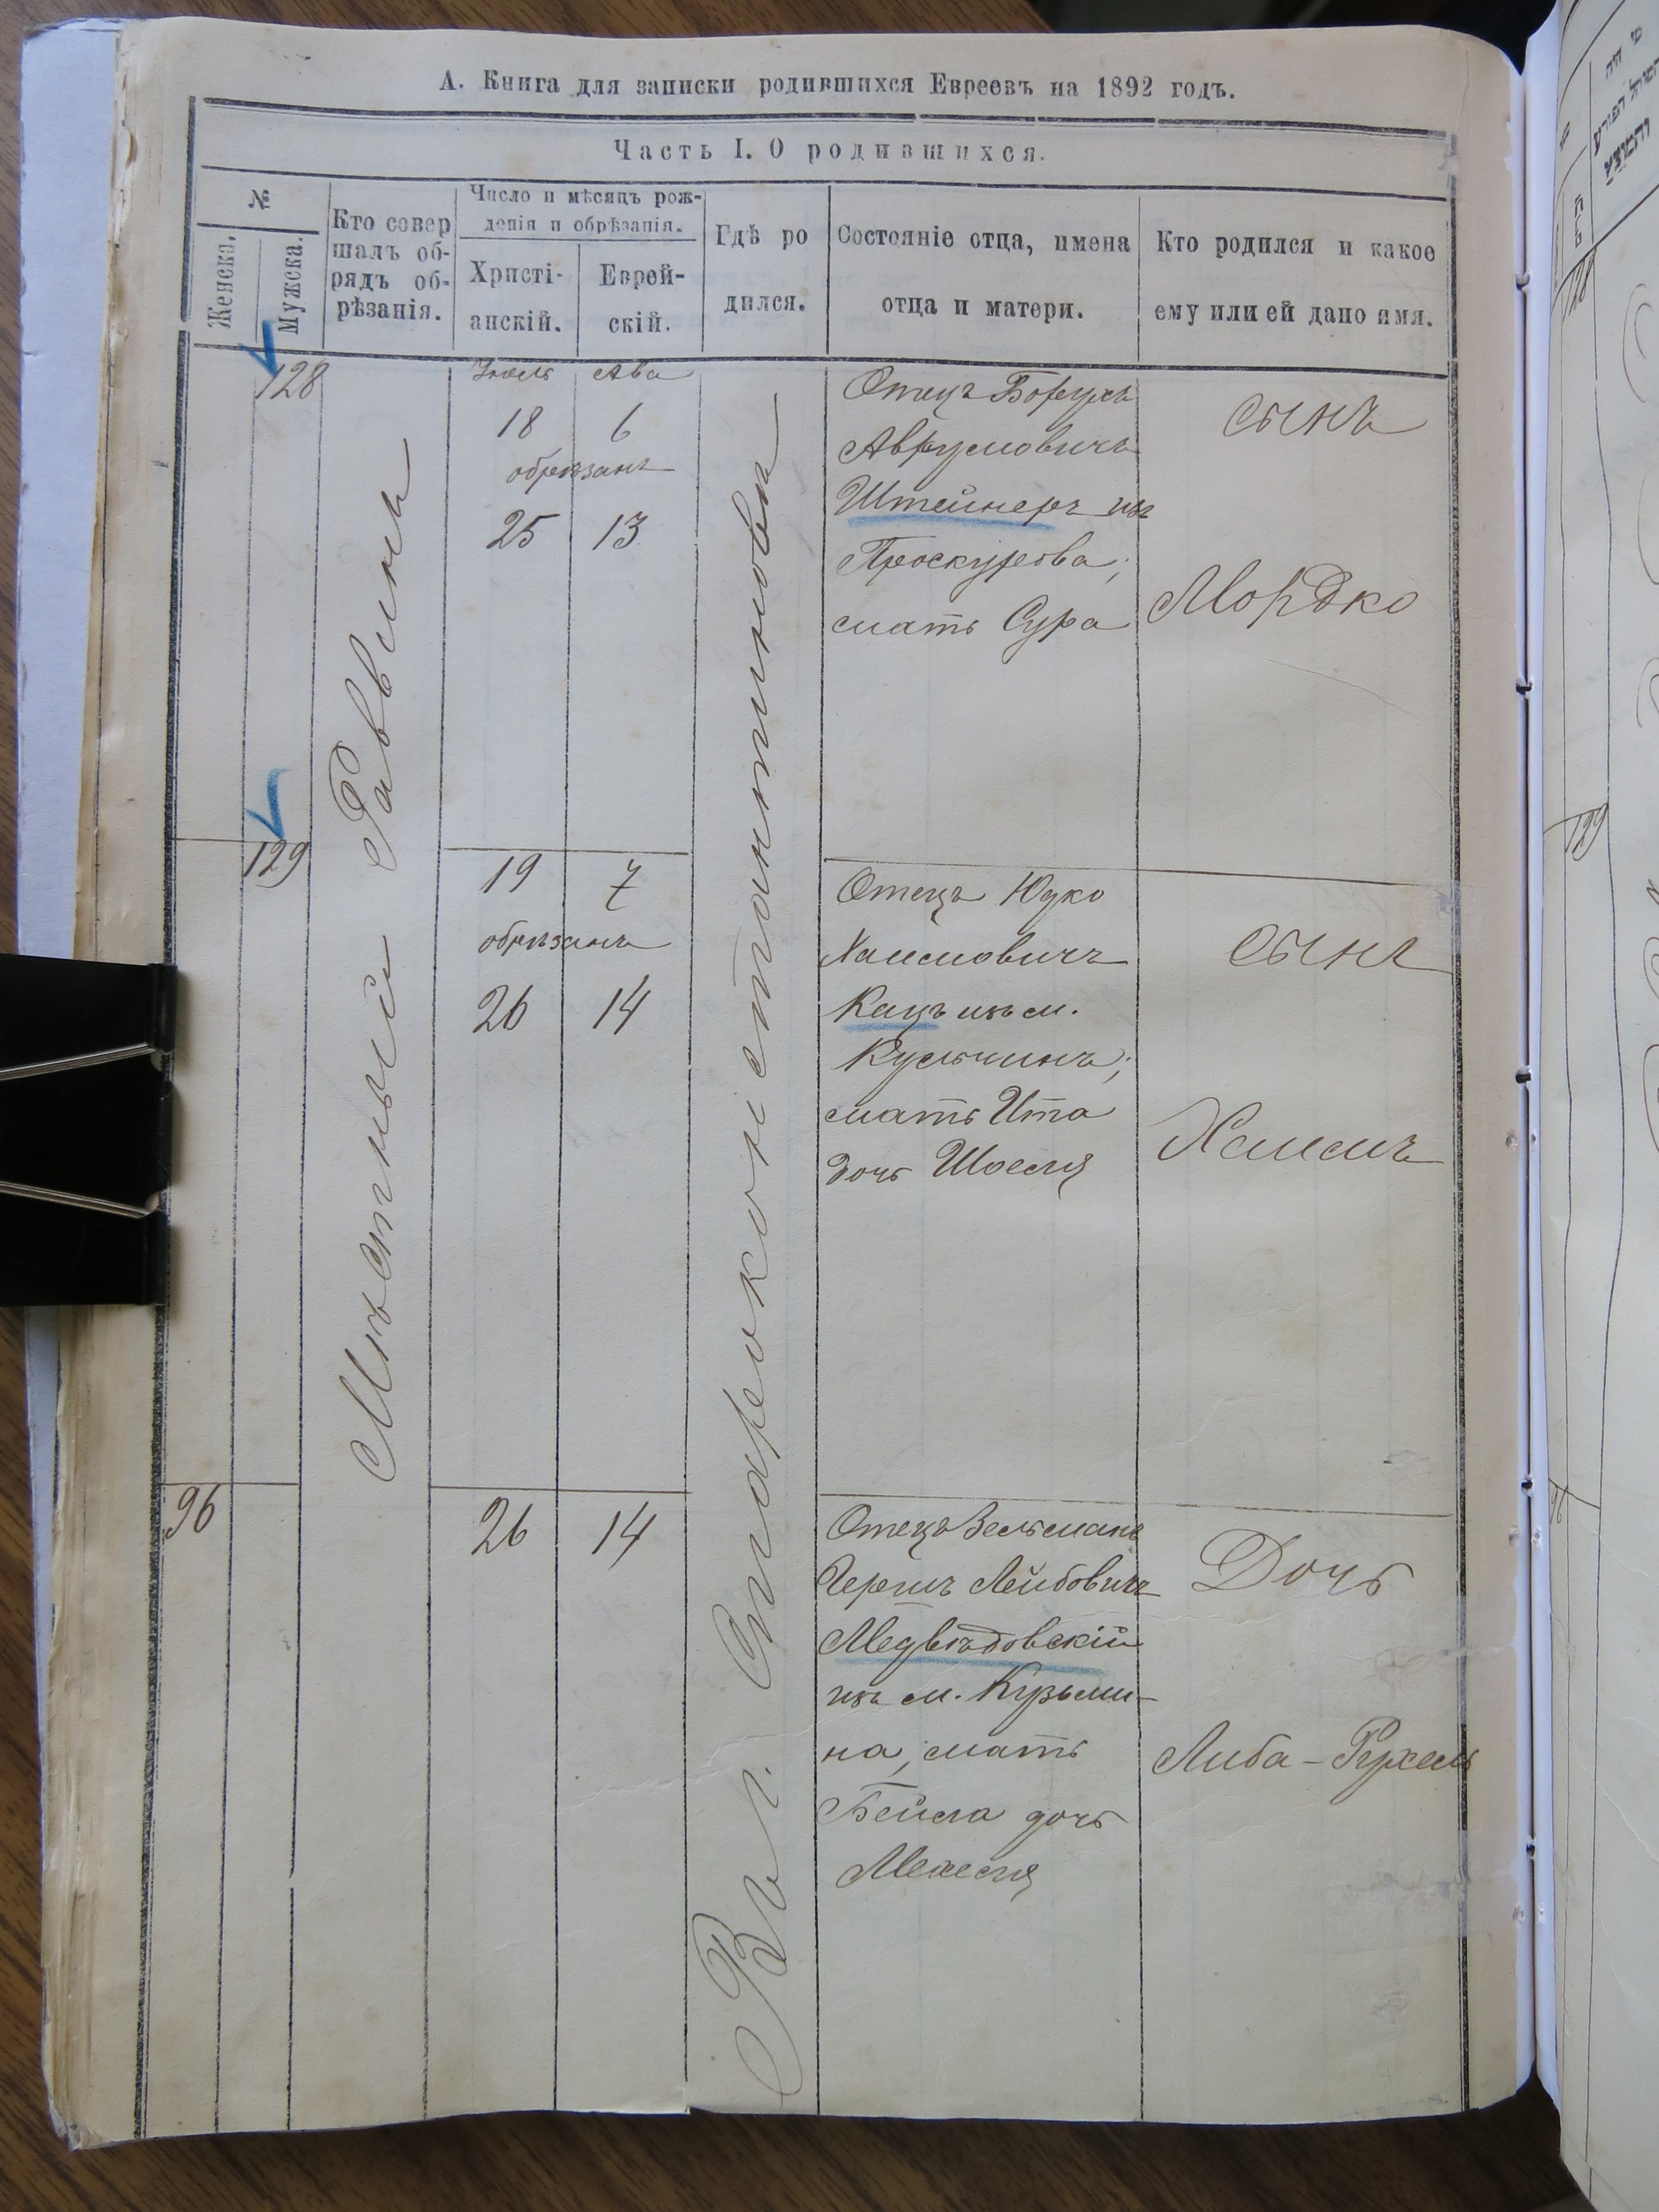 А. Книга для записки родившихся Евреевъ на 1892 годъ.
Часть I. О родившихся.
№
Женска.
Мужска.
Кто совер
шалъ об-
рядъ об-
рѣзанія.
Число и мѣсяцъ рож-
денія и обрѣзанія.
Христі-
анскій.
Еврей-
скій.
Гдѣ ро
дился.
Состояніе отца, имена
отца и матери.
Кто родился и какое
ему или ей дано имя.
Мѣстный Раввинъ
Въ г. Староконстантиновѣ
128
Іюль Ава
18 6
обрѣзанъ
25 13
Отецъ Борухъ
Аврумовичъ
Штейнеръ изъ
Проскурова;
мать Сура
сынъ
Мордко
129
19 7
обрѣзанъ
26 14
Отецъ Юдко
Хаимовичъ
Кацъ изъ м.
Кульчинъ;
мать Ита
дочь Шоеля
сынъ
Хаимъ
96
26 14
Отецъ Зельманъ
Гершъ Лейбовичъ
Медвѣдовскій
изъ м. Кузьми-
на, мать
Бейла дочь
Мехеля
Дочь
Либа-Рухель
128
129
96